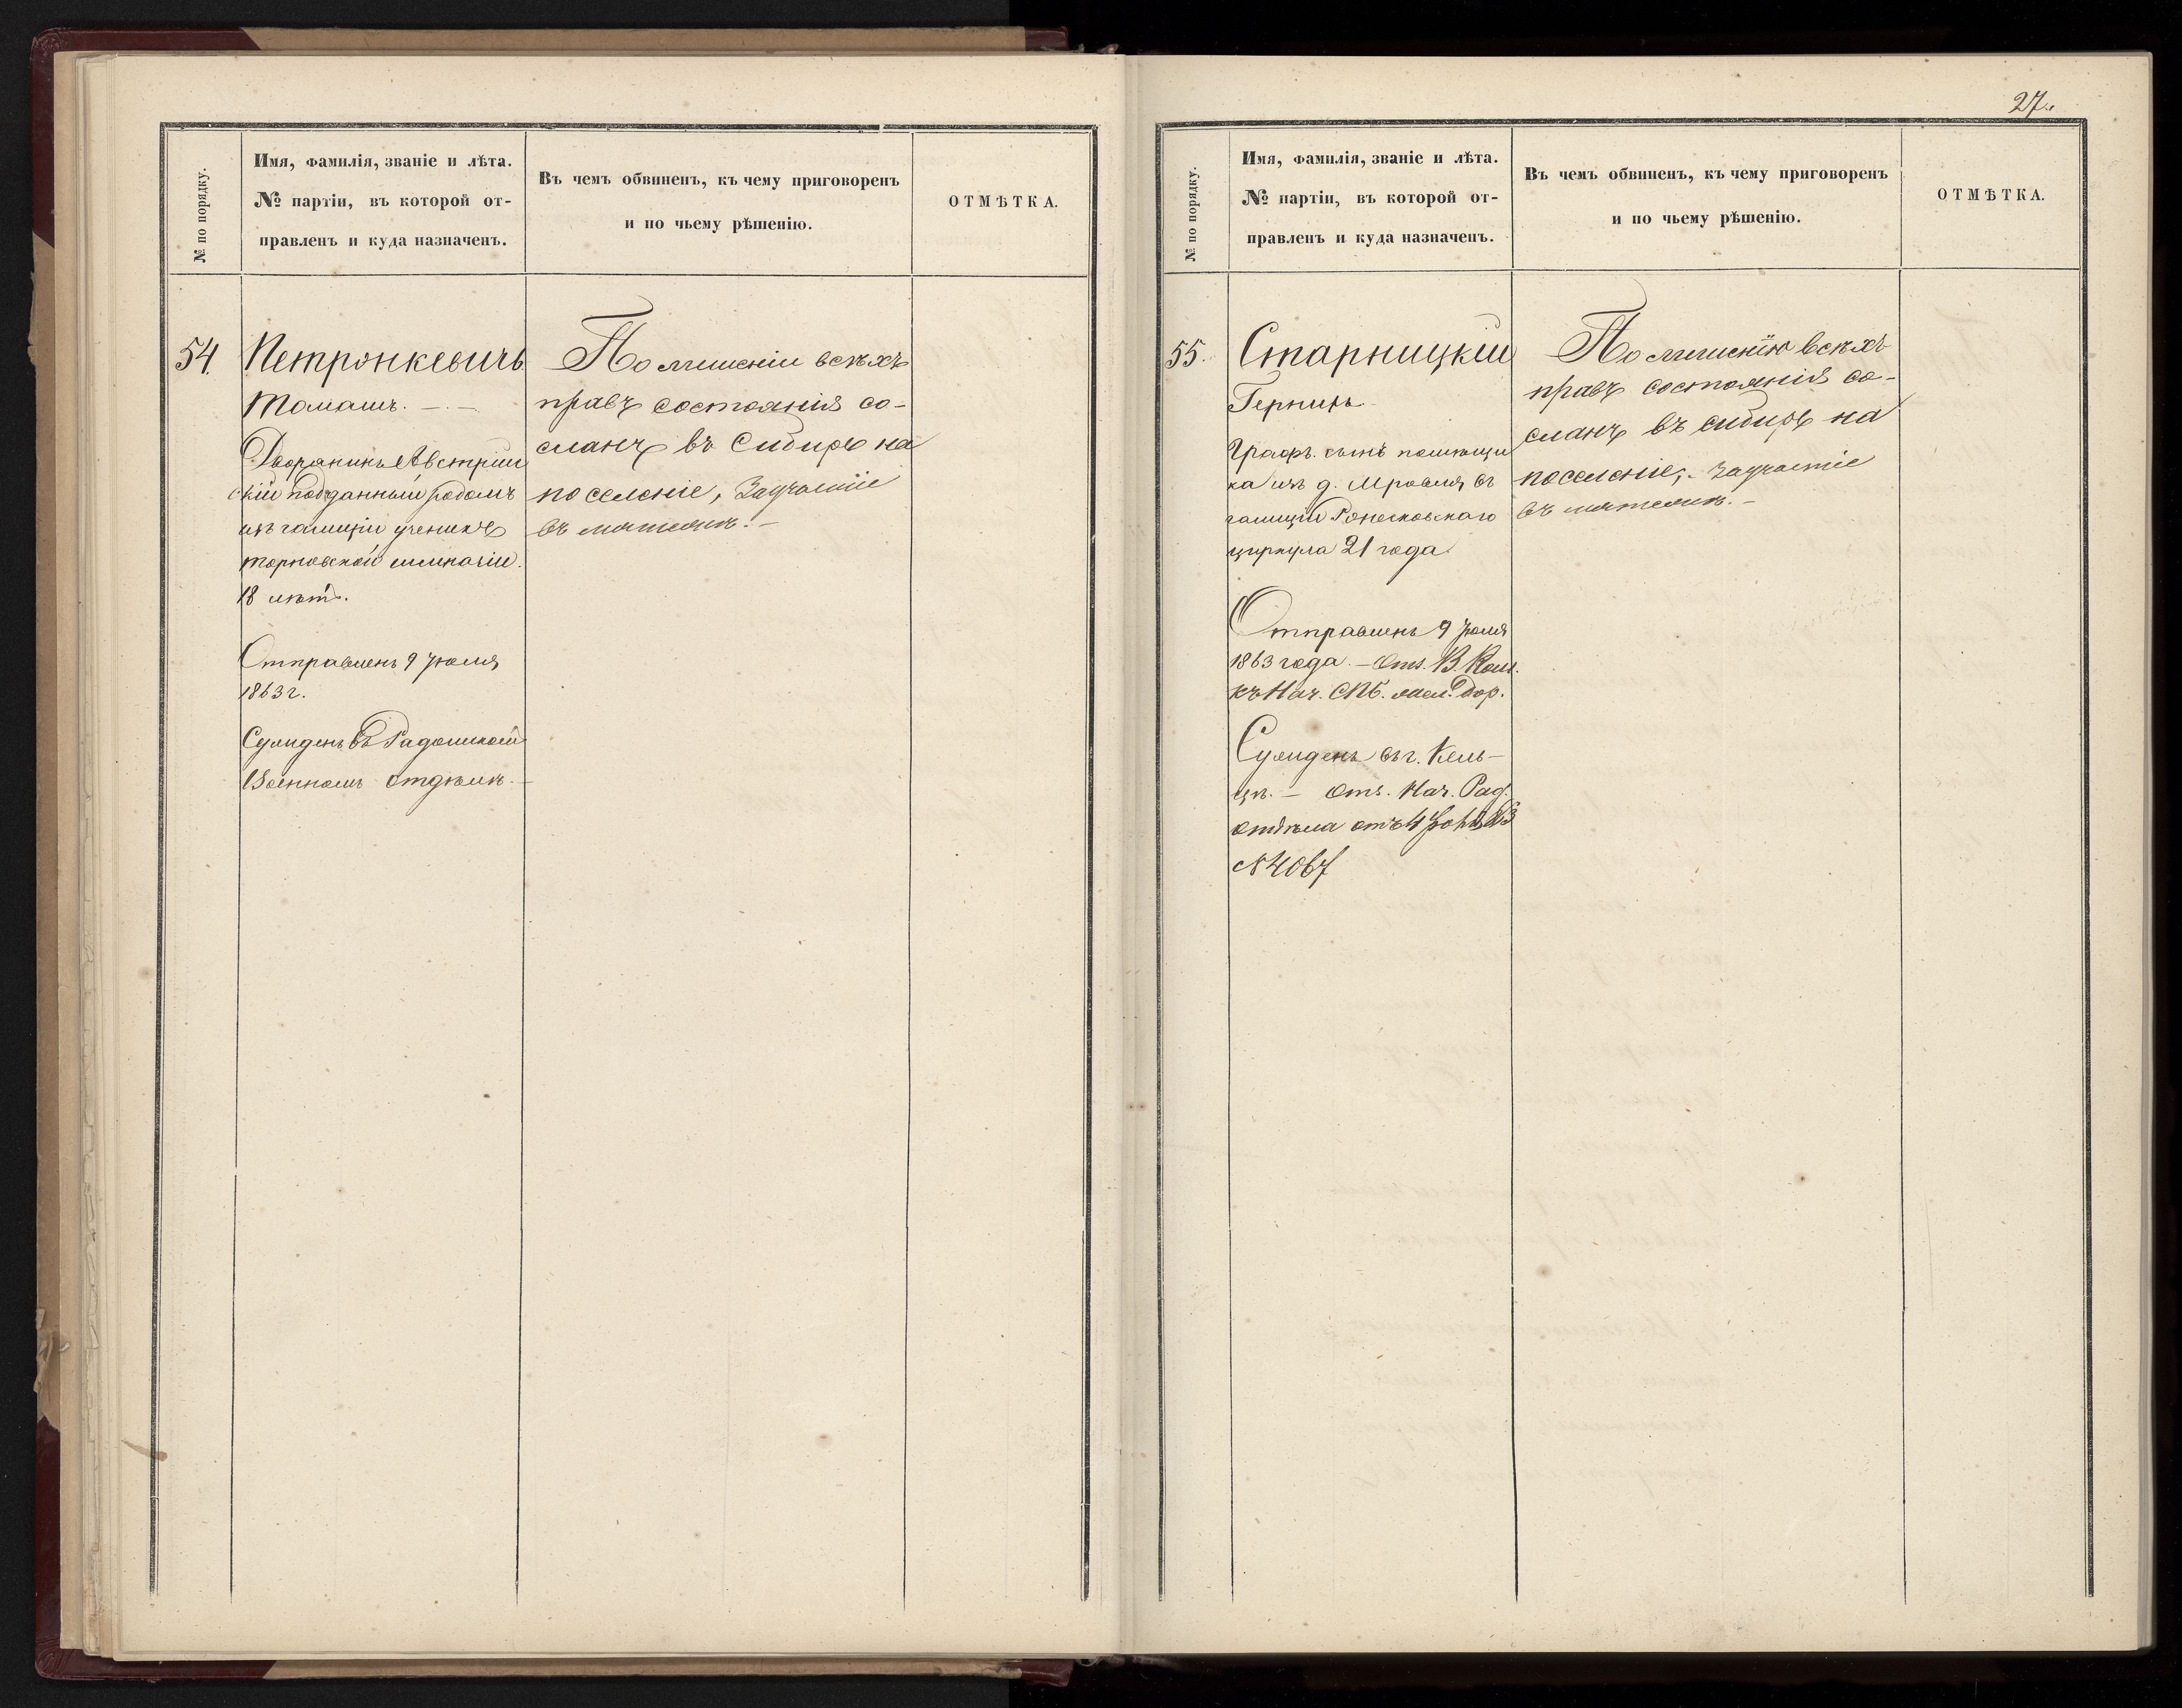 № по порядку.
Имя, фамилія, званіе и лѣта.
№ партіи, въ которой от-
правленъ и куда назначенъ.
Въ чемъ обвиненъ, къ чему приговоренъ
и по чьему рѣшенію.
ОТМѢТКА.
54.
Петронкевичъ
Томашъ. — . —
Дворянинъ Австрій
скій подданный родомъ
изъ галиціи ученикъ
торновской гимназіи.
18 лѣтъ.
Отправленъ 9 Іюля
1863 г.
Сужденъ въ Радомской
Военномъ отдѣлѣ. —
По лишеніи всѣхъ
правъ состоянія со-
сланъ въ Сибирь на
поселеніе, За участіе
въ мятежѣ. —
27.
№ по порядку.
Имя, фамилія, званіе и лѣта.
№ партіи, въ которой от-
правленъ и куда назначенъ.
Въ чемъ обвиненъ, къ чему приговоренъ
и по чьему рѣшенію.
ОТМѢТКА.
55.
Старницкій
Графъ. сынъ помѣщи
ка изъ д. Мровля въ
галиціи
циркула 21 года.
Отправленъ 9 Іюля
1863 года. — Отз. В. Ком.
къ Нач. СПБ. жел. дор.
Сужденъ въ г. Кель-
цѣ. — Отз. Нач. Рад.
отдѣла отъ 4
№ 4067
По лишенію всѣхъ
правъ состоянія со-
сланъ въ сибирь на
поселеніе, За участіе
въ мятежѣ. —